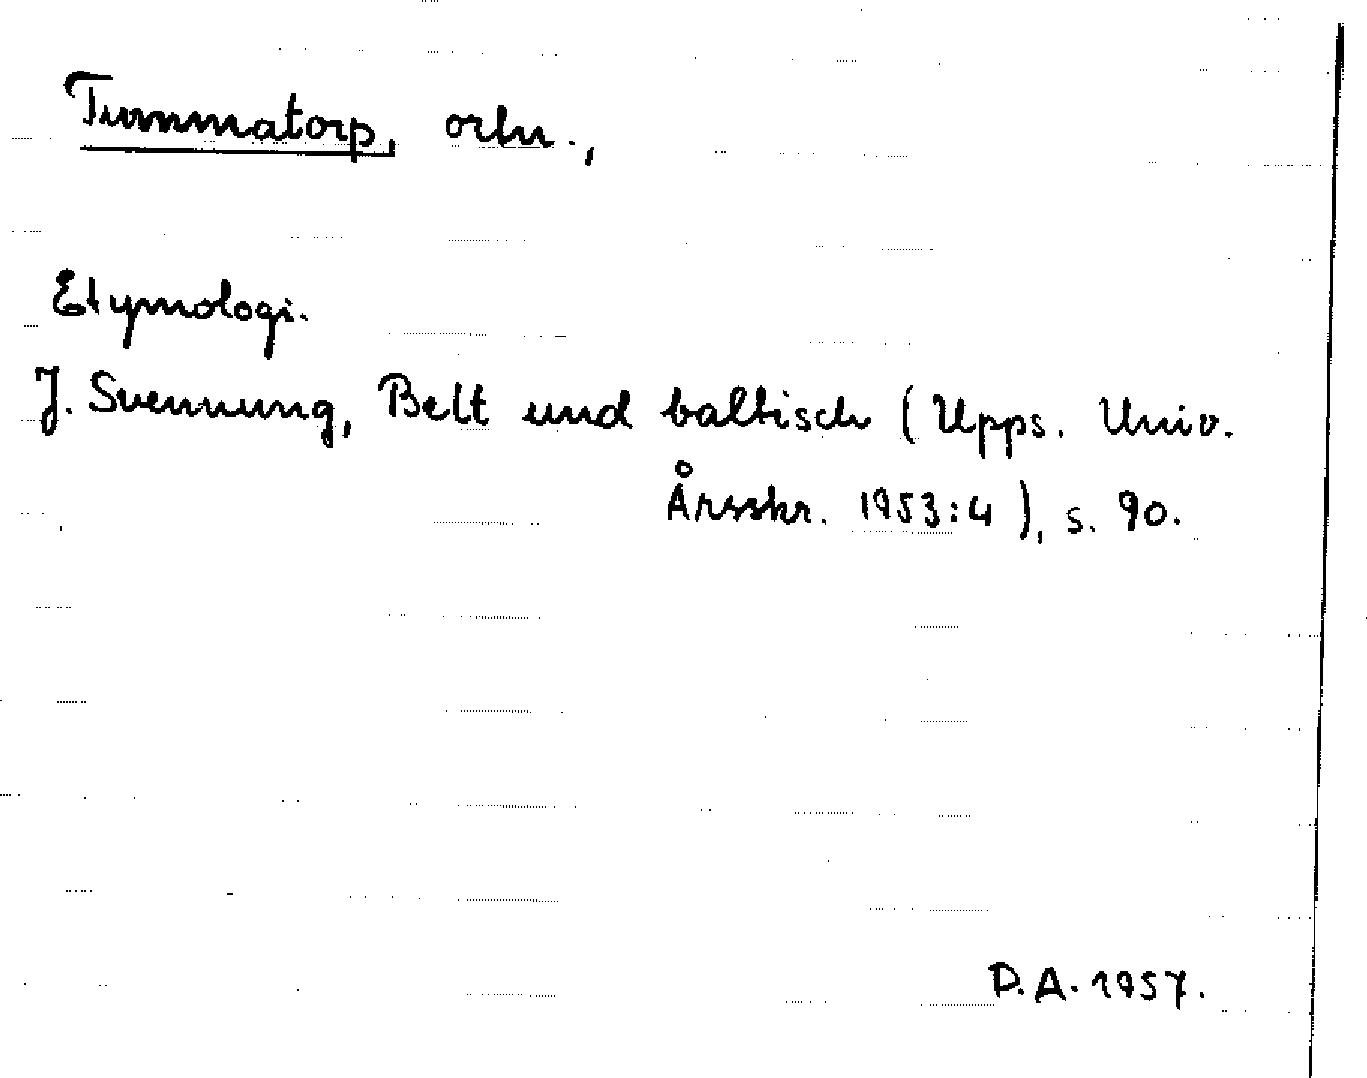 Tummatorp, ortn.,
Etymologi.
J. Svennung, Belt und baltisch (Upps. Univ.
Årsskr. 1953:4), s. 90.
D.A. 1957.